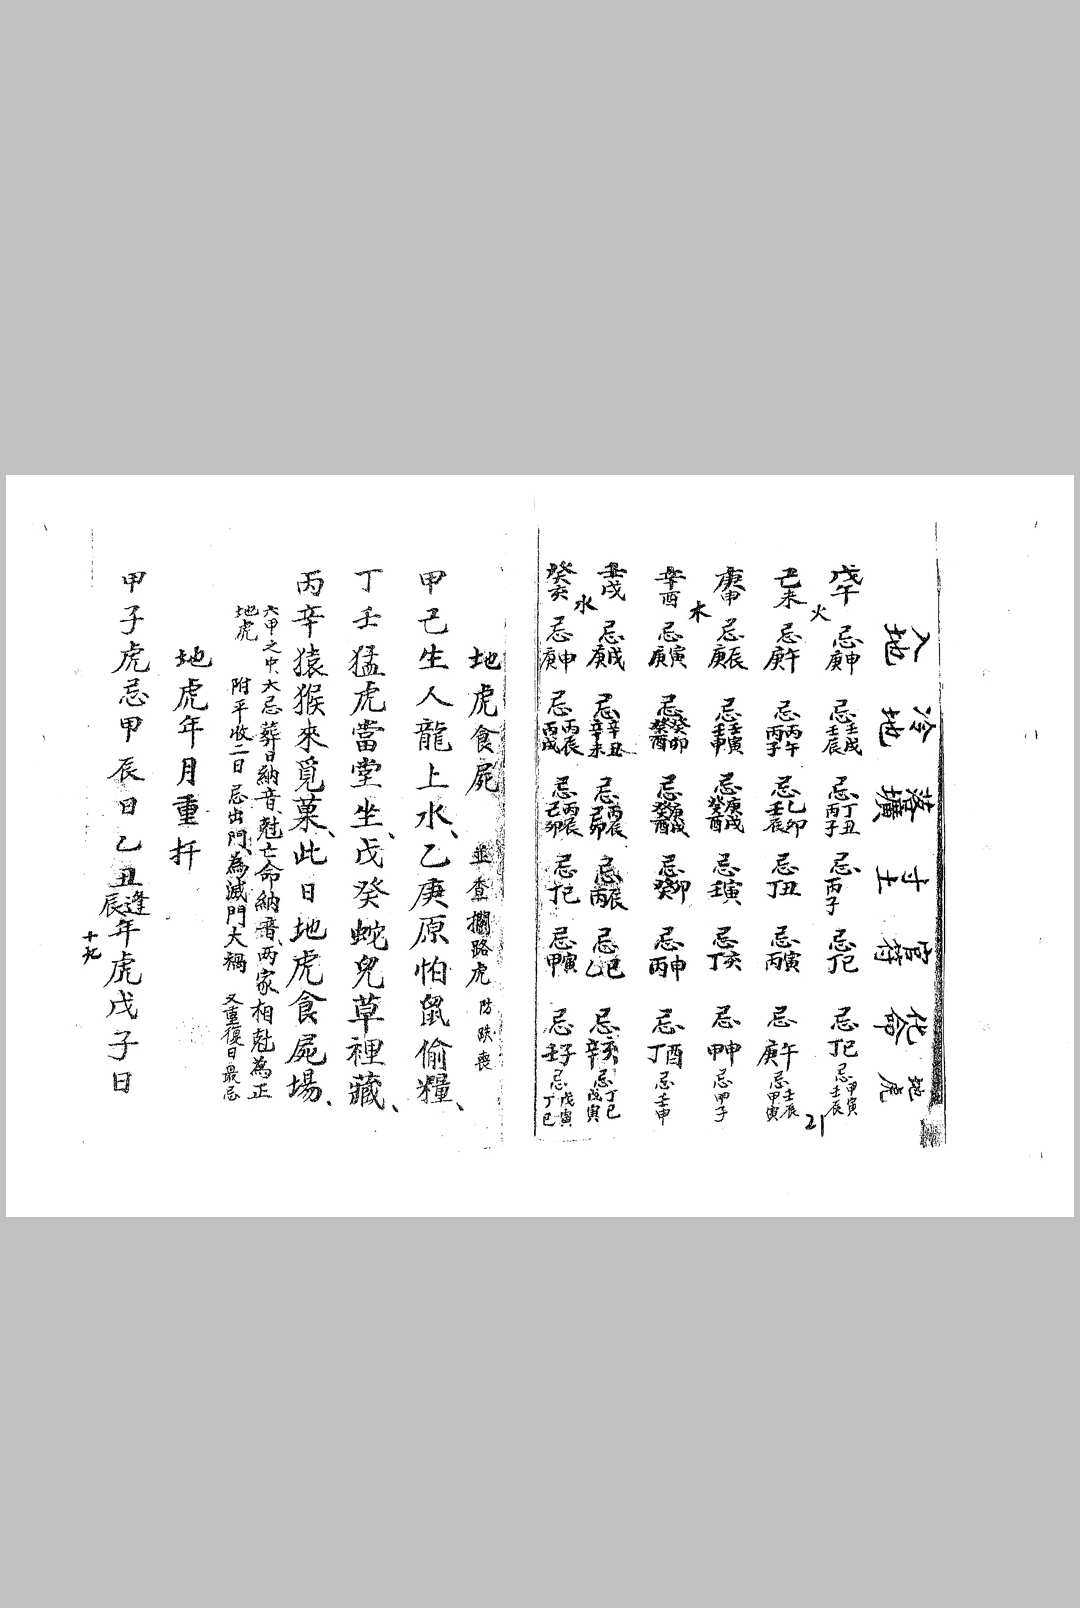 入地 冷地 落壙 寸土 官符 化命 地虎
戊午 火 忌庚申 忌壬戌壬辰 忌丁丑丙子 忌丙子 忌丁巳 忌丁巳 忌甲寅壬辰
己未 忌庚午 忌丙午丙子 忌乙卯壬辰 忌丁丑 忌丙寅 忌庚午 忌壬辰甲寅
21
庚申 木 忌庚辰 忌壬寅壬申 忌庚戌癸酉 忌壬寅 忌丁亥 忌甲申 忌甲子
辛酉 忌庚寅 忌癸卯癸酉 忌庚戌癸酉 忌癸卯 忌丙申 忌丁酉 忌壬申
壬戌 水 忌庚戌 忌辛丑辛未 忌丙辰己卯 忌丙辰 忌乙巳 忌辛亥 忌丁巳戊寅
癸亥 忌庚申 忌丙辰丙戌 忌丙辰己卯 忌丁巳 忌甲寅 忌壬子 忌戊寅丁巳
地虎食屍 並查攔路虎 防跌喪
甲己生人龍上水、乙庚原怕鼠偷糧、
丁壬猛虎當堂坐、戊癸蛇兒草裡藏、
丙辛猿猴來覓菓、此日地虎食屍場、
六甲之中、大忌葬日納音、尅亡命納音、兩家相尅為正
地虎 附平收二日 忌出門、為滅門大禍 又重復日最忌
地虎年月重扦
甲子虎忌甲辰日乙丑辰逢年虎戊子日
十九